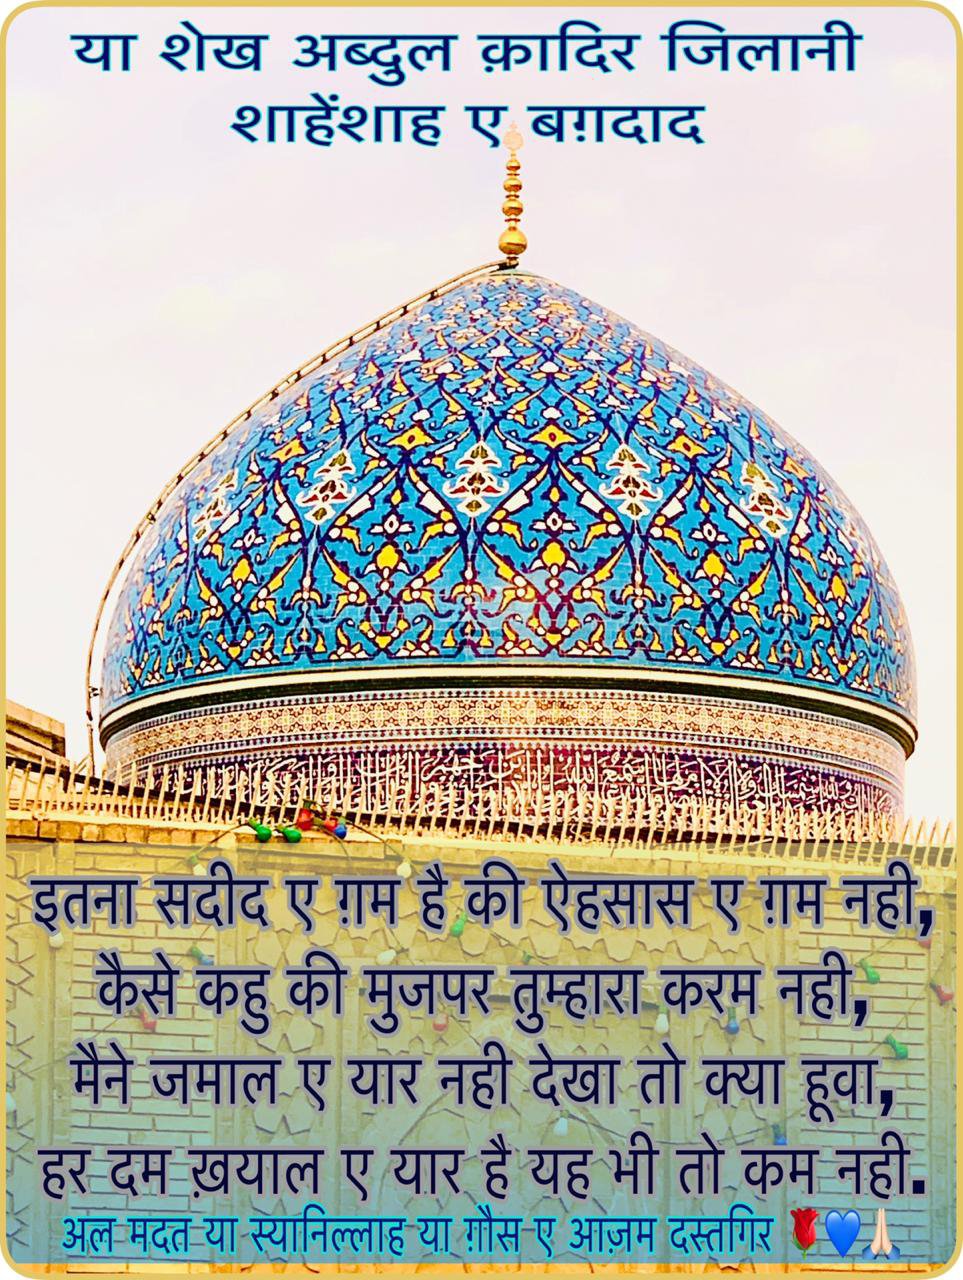 या शेख अब्दुल क़ादिर जिलानी
शाहेंशाह ए बग़दाद
इतना सदीद ए ग़म है की ऐहसास ए ग़म नही,
कैसे कहु की मुजपर तुम्हारा करम नही,
मैने जमाल ए यार नही देखा तो क्या हूवा,
हर दम ख़याल ए यार है यह भी तो कम नही.
अल मदत या स्यानिल्लाह या ग़ौस ए आज़म दस्तगिर 🌹💙🙏🏻